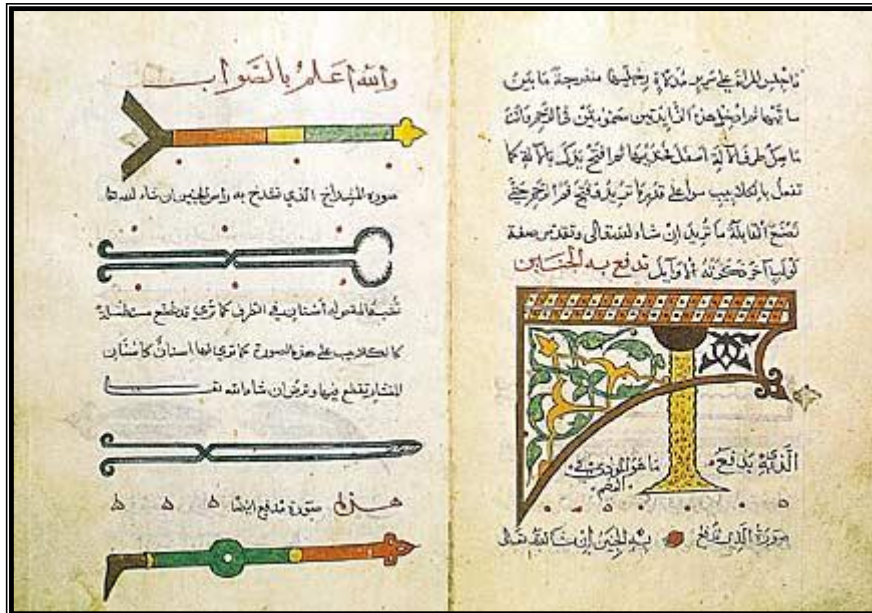 فاجلس المراة على سرير مدلاة رجليها منفرجة ما بين
ساقيها ثم ادخل هذه الزايدتين مضمومتين في الرحم وانت
ماسك طرف الآلة اسفل فخذيها ثم افتح يدك بالآلة كما
تفعل بالكلاليب سوا على قدر ما تريد فتح فم الرحم حتى
تصنع القابلة ما تريد ان شاء الله تعالى وتقدس صفة
لولب آخر ذكرته الاوايل تدفع به الجنين
يدفع ما هو
صورة الذي تدفع به الجنين ان شا الله تعالى
والله اعلم بالصواب
صورة المشداخ الذي تشدخ به رأس الجنين ان شاء الله
اسنان في الطرف كما ترى قد تصنع مستطيلة
كالكلاليب على هذه الصورة كما ترى لها اسنان كاسنان
المنشار يقطع بها وترض ان شاء الله
هذه صورة مدفع ايضا ه ه ه